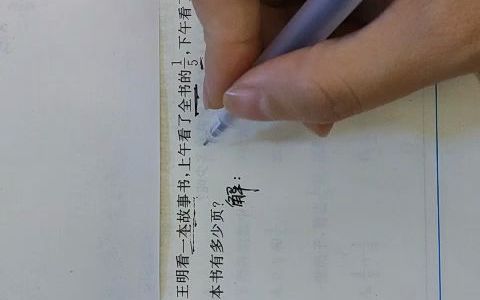 王明看一本故事书,上午看了全书的1/5,下午看
本书有多少页?
解: